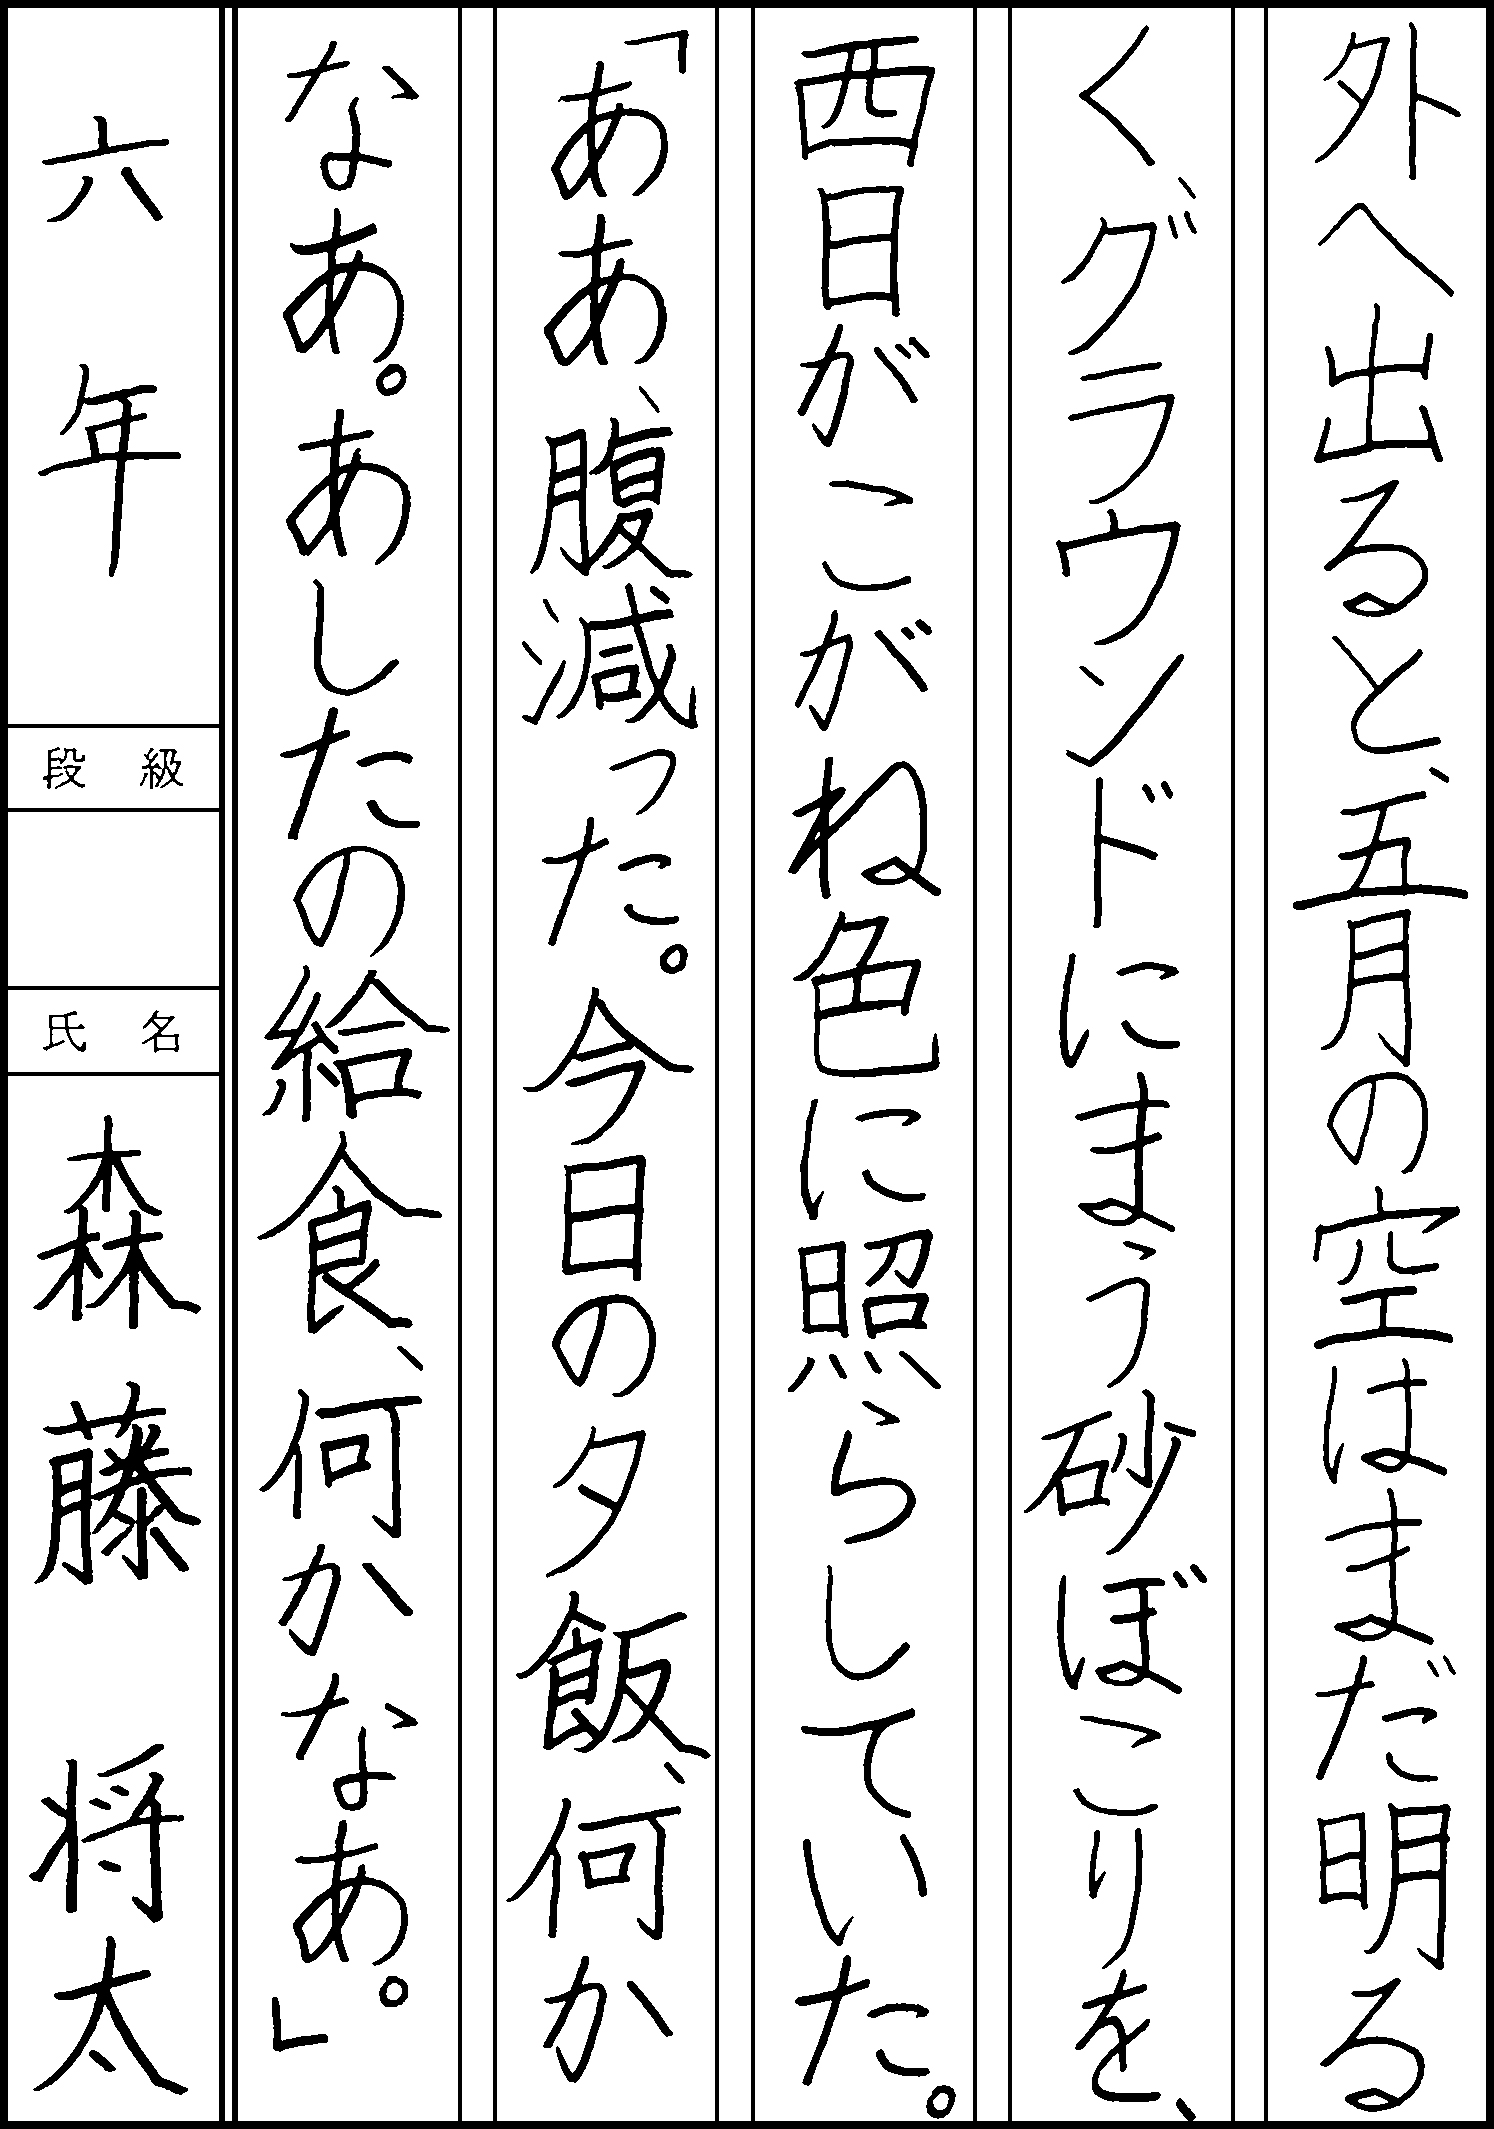 外へ出ると、五月の空はまだ明る
く、グラウンドにまう砂ぼこりを、
西日がこがね色に照らしていた。
「ああ、腹減った。今日の夕飯、何か
なあ。あしたの給食、何かなあ。」
六年
段級
氏名
森藤 将太